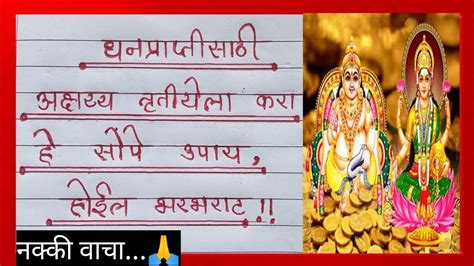 धनप्राप्तीसाठी
अक्षय्य तृतीयेला करा
हे सोपे उपाय,
होईल भरभराट !!
नक्की वाचा...🙏